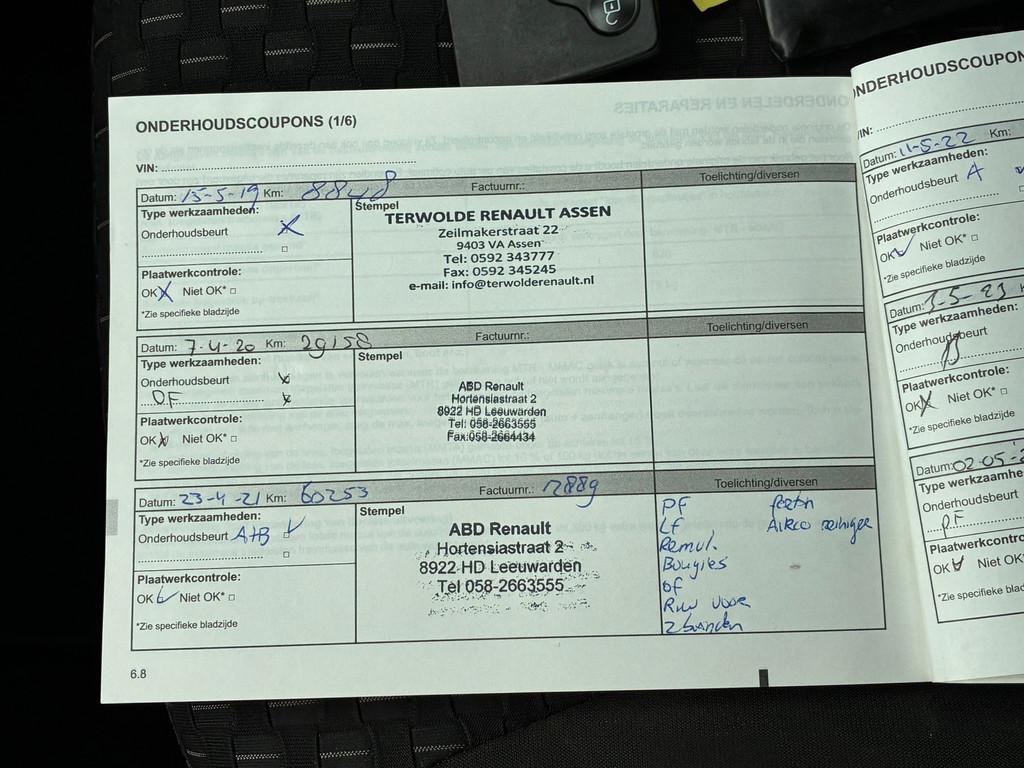 ONDERHOUDSCOUPONS (1/6)
VIN:
Datum: 13-5-19 Km: 8848
Factuurnr.:
Toelichting/diversen
Type werkzaamheden:
Onderhoudsbeurt X
Plaatwerkcontrole:
OK X Niet OK* □
*Zie specifieke bladzijde
Stempel
TERWOLDE RENAULT ASSEN
Zeilmakerstraat 22
9403 VA Assen
Tel: 0592 343777
Fax: 0592 345245
e-mail: info@terwolderenault.nl
Datum: 7-4-20 Km: 29158
Factuurnr.:
Toelichting/diversen
Type werkzaamheden:
Onderhoudsbeurt X
OF X
Plaatwerkcontrole:
OK X Niet OK* □
*Zie specifieke bladzijde
Stempel
ABD Renault
Hortensiastraat 2
8922 HD Leeuwarden
Tel: 058-2663555
Fax:058-2664434
Datum: 23-4-21 Km: 60253
Factuurnr.: 12889
Toelichting/diversen
Type werkzaamheden:
Onderhoudsbeurt A+B
Plaatwerkcontrole:
OK Niet OK* □
*Zie specifieke bladzijde
Stempel
ABD Renault
Hortensiastraat 2
8922 HD Leeuwarden
Tel 058-2663555
PF
LF Airco reiniger
Remvl.
Bougies
OF
Ruw voor
2 banden
6.8
ONDERHOUDSCOUPON
VIN:
Datum: 11-5-22 Km:
Type werkzaamheden:
Onderhoudsbeurt A
Plaatwerkcontrole:
OK Niet OK* □
*Zie specifieke bladzijde
Datum: 3-5-23
Type werkzaamheden:
Onderhoudsbeurt
Plaatwerkcontrole:
OK X Niet OK* □
*Zie specifieke bladzijde
Datum: 02-05-
Type werkzaamhe
Onderhoudsbeurt
OF
Plaatwerkcontro
OK Niet OK
*Zie specifieke blad